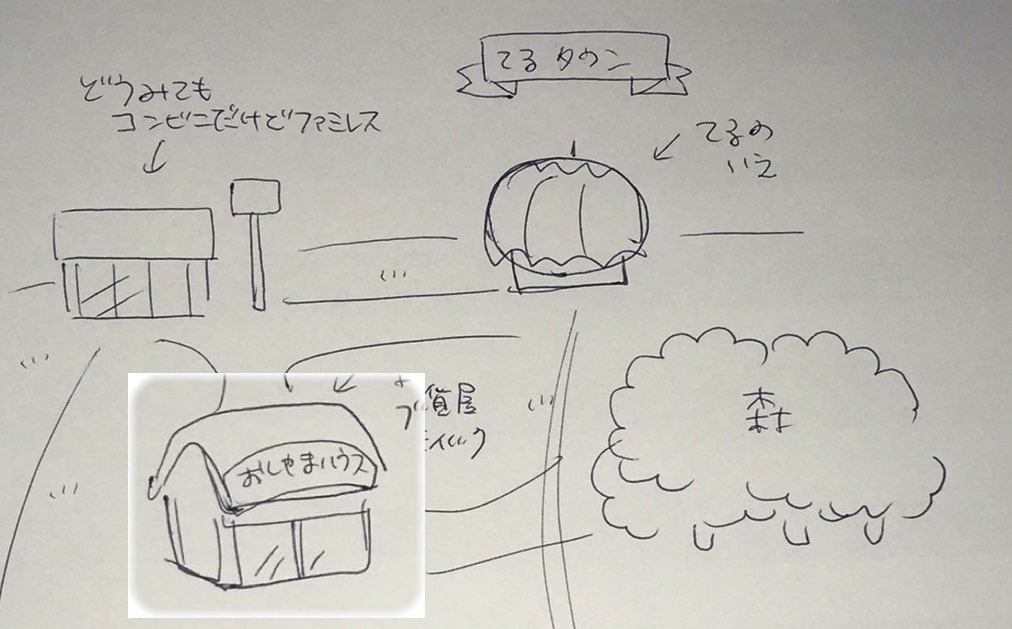 てるタウン
どうみても
コンビニだけどファミレス
てるの
いえ
森
貨屋
おしゃまハウス